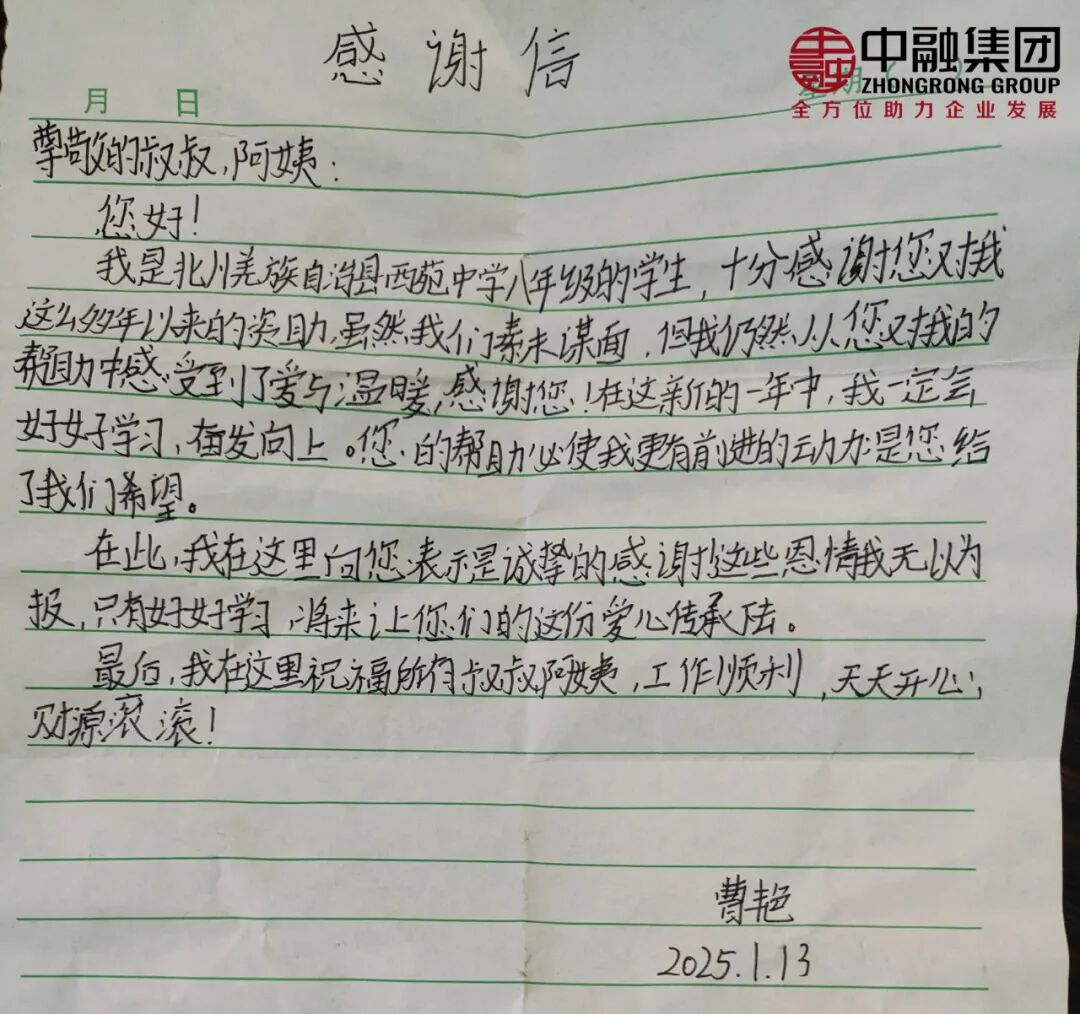 感谢信
中融集团
ZHONGRONG GROUP
全方位助力企业发展
月 日
尊敬的叔叔,阿姨:
您好!
我是北川羌族自治县西苑中学八年级的学生,十分感谢您对我
这么多年以来的资助,虽然我们素未谋面,但我仍然从您对我的
帮助中感受到了爱与温暖,感谢您!在这新的一年中,我一定会
好好学习,奋发向上。您的帮助必使我更有前进的动力是您给
了我们希望。
在此,我在这里向您表示最诚挚的感谢!这些恩情我无以为
报,只有好好学习,将来让您们的这份爱心传承下去。
最后,我在这里祝福所有叔叔阿姨,工作顺利,天天开心,
财源滚滚!
曹艳
2025.1.13